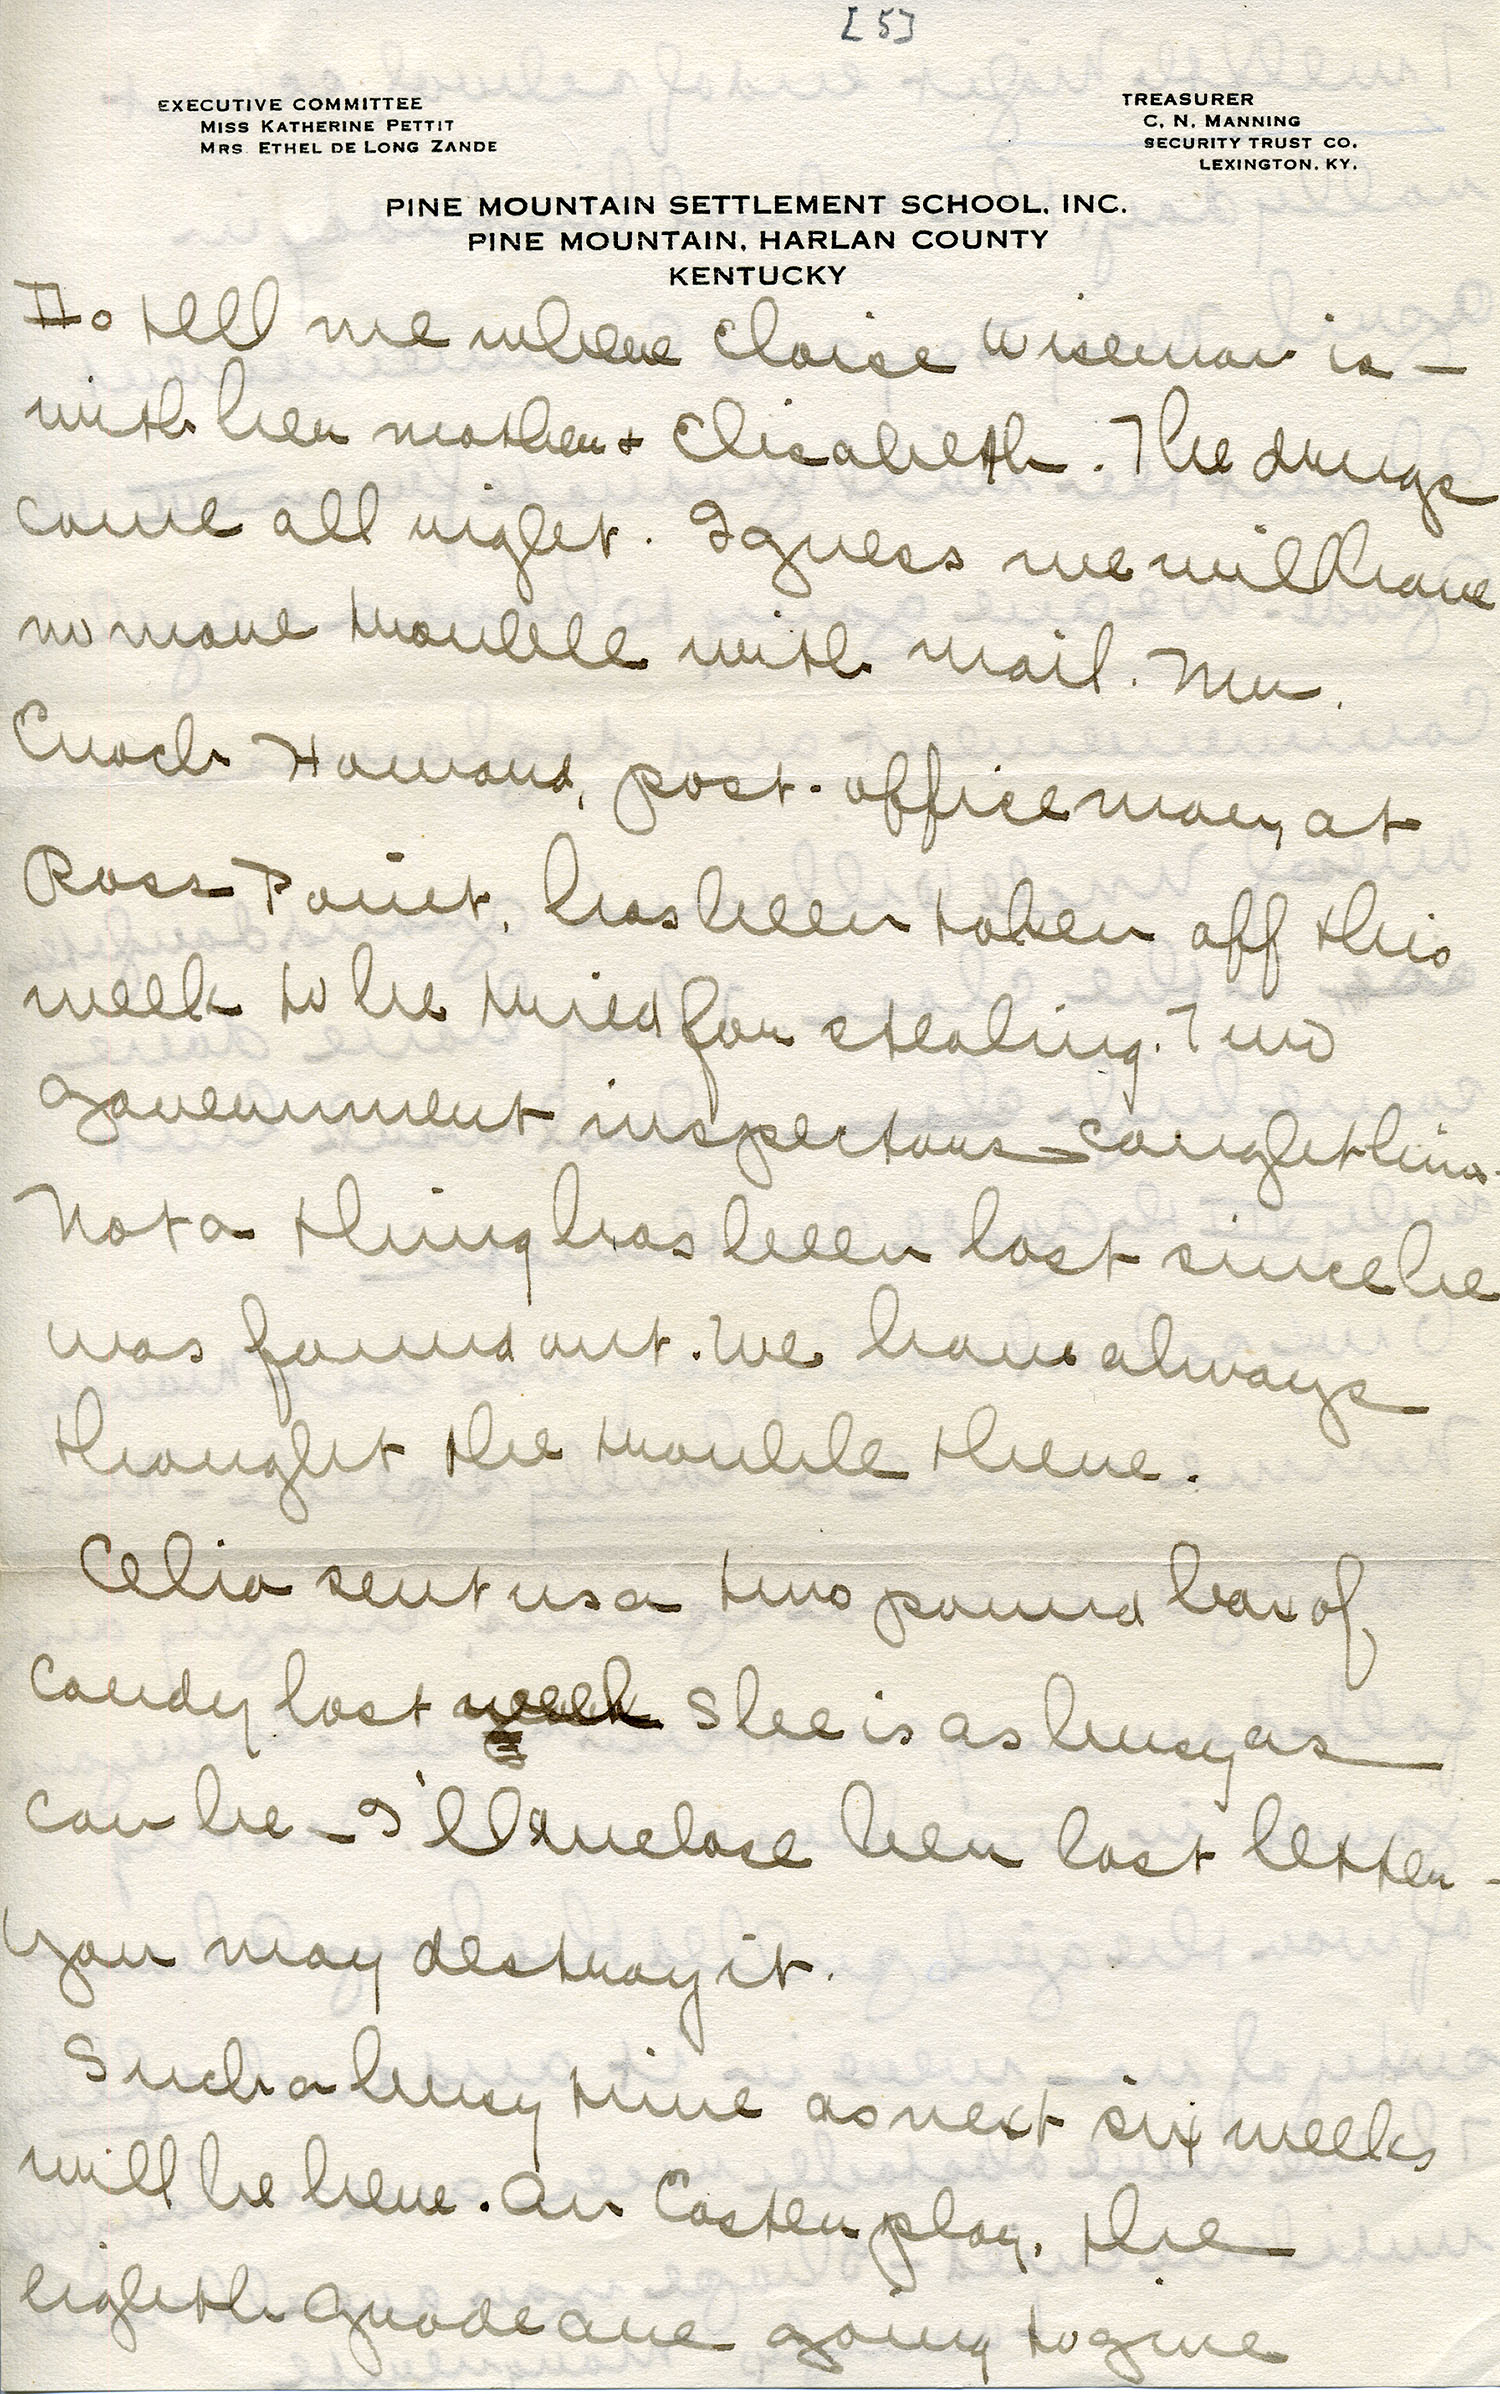 [5]
EXECUTIVE COMMITTEE
MISS KATHERINE PETTIT
MRS. ETHEL DE LONG ZANDE
TREASURER
C. N. MANNING
SECURITY TRUST CO.
LEXINGTON, KY.
PINE MOUNTAIN SETTLEMENT SCHOOL, INC.
PINE MOUNTAIN, HARLAN COUNTY
KENTUCKY
Do tell me where Eloise Wiseman is –
with her mother & Elisabeth. The drugs
came all right. I guess we will have
no more trouble with mail. Mr.
Enoch Howard, post-office man, at
Ross Point, has been taken off this
week to be tried for stealing. Two
government inspectors caught him.
Not a thing has been lost since he
was found out. We have always
thought the trouble there.
Celia sent us a two pound box of
candy last week She is as busy as
can be – I'll enclose her last letter –
you may destroy it.
Such a busy time as next six weeks
will be here. An Easter play, the
eighth grade are going to give